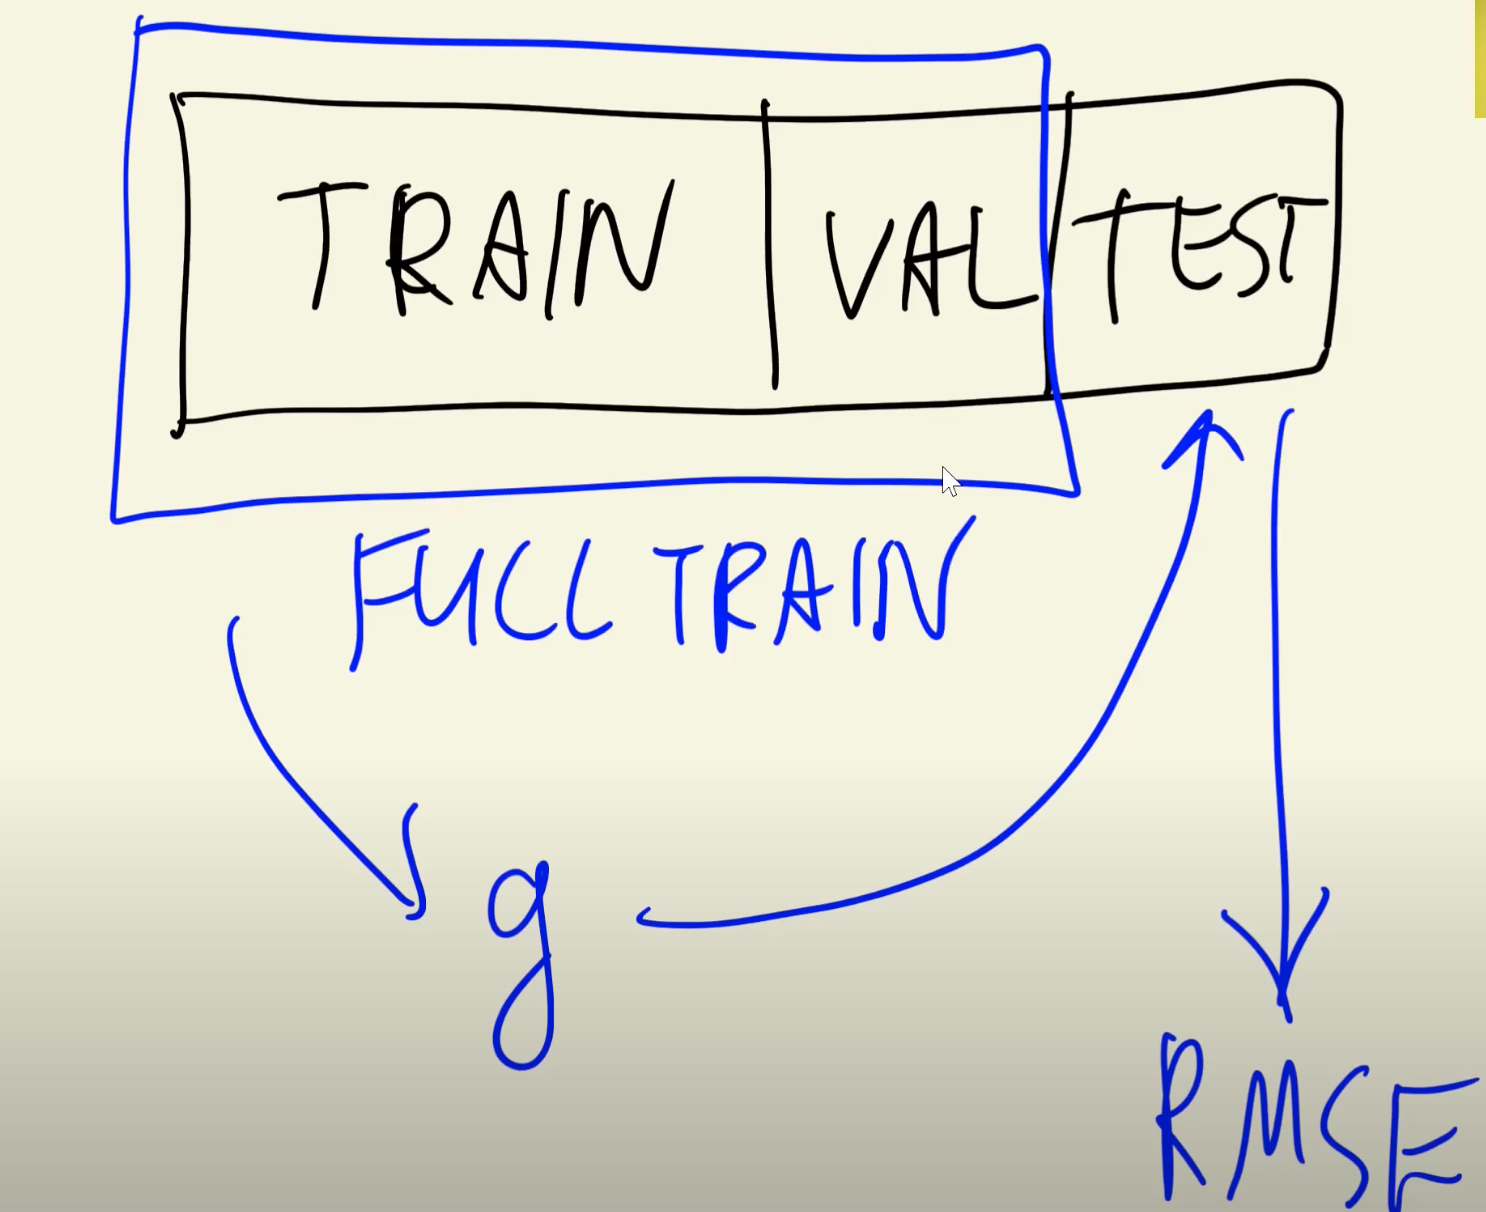 TRAIN VAL TEST
FULL TRAIN
g
RMSE